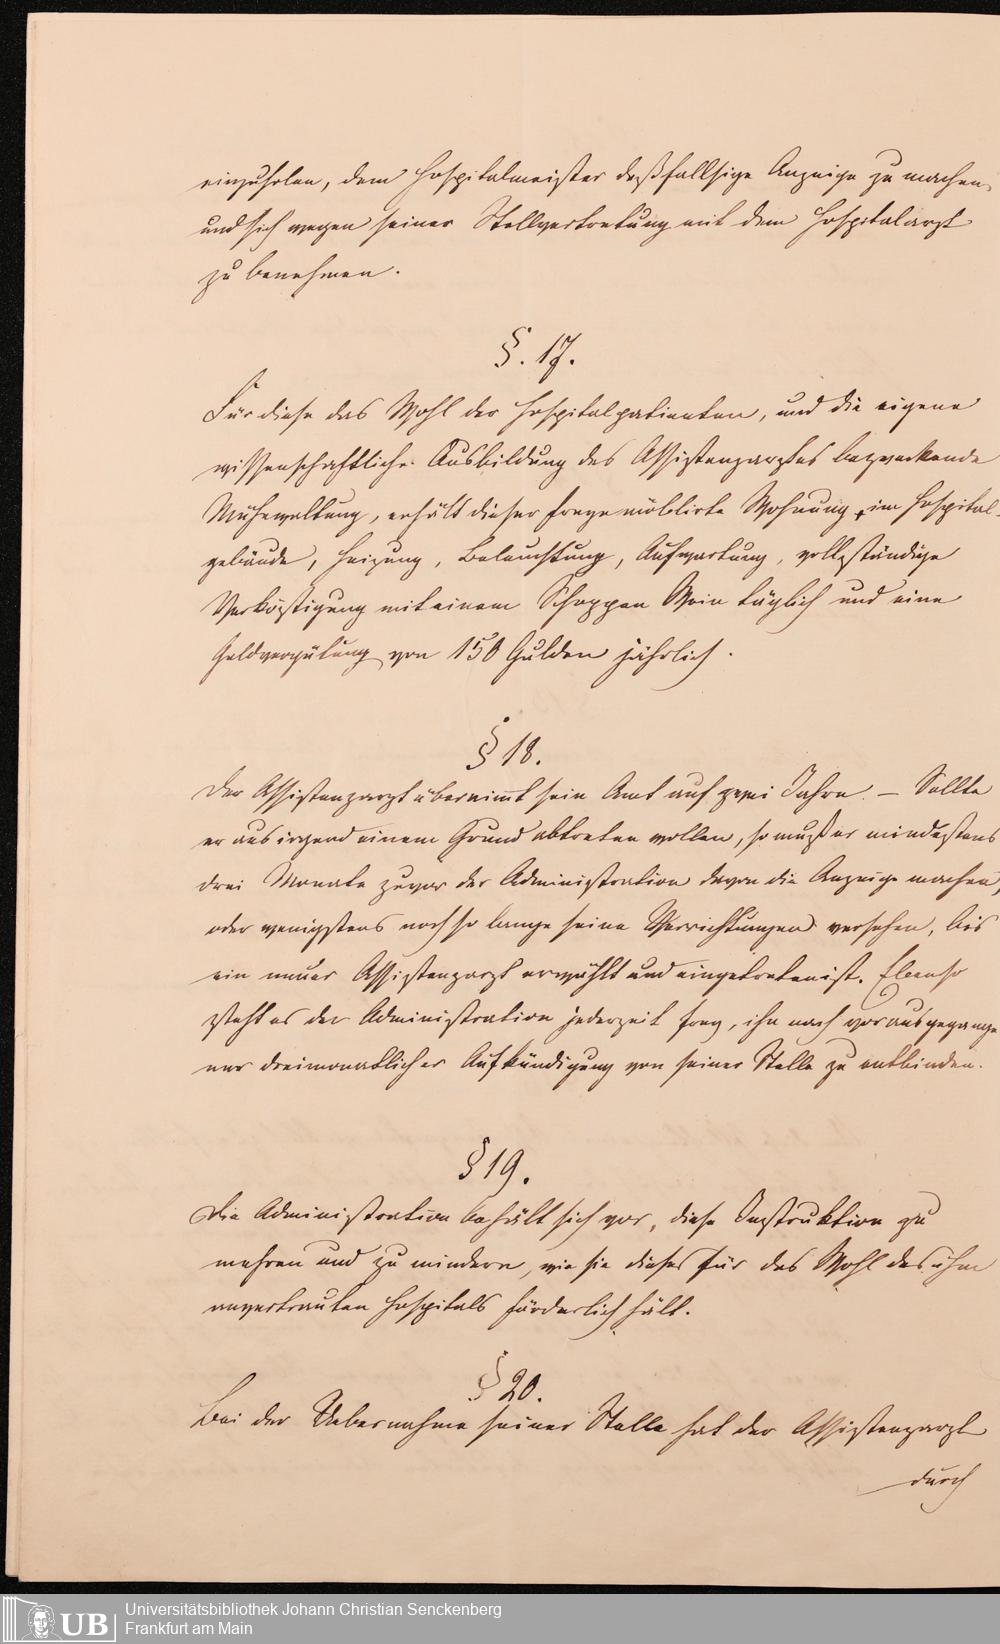 einzuholen, dem Hospitalmeister deßfallsige Anzeige zu machen,
und sich wegen seiner Stellvertretung mit dem Hospitalarzt
zu benehmen.
§. 17.
Für diese das Wohl der Hospitalpatienten, und die eigene
wissenschaftliche Ausbildung des Assistenzarztes bezweckende
Mühewaltung, erhält dieser freye möblirte Wohnung, im Hospital-
gebäude, Heizung, Beleuchtung, Aufwartung, vollständige
Verköstigung mit einem Schoppen Wein täglich und eine
Geldvergütung von 150 Gulden jährlich.
§ 18.
Der Assistenzarzt übernimt sein Amt auf zwei Jahre. – Sollte
er aus irgend einem Grund abtreten wollen, so muß er mindestens
drei Monate zuvor der Administration davon die Anzeige machen,
oder wenigstens noch so lange seine Verrichtungen versehen, bis
ein neuer Assistenzarzt erwählt und eingetreten ist. Ebenso
steht es der Administration jederzeit frey, ihn nach vorausgegange
ner dreimonatlicher Aufkündigung von seiner Stelle zu entbinden.
§ 19.
Die Administration behält sich vor, diese Instruktion zu
mehren und zu mindern, wie sie dieses für das Wohl des ihm
anvertrauten Hospitals förderlich hält.
§ 20.
Bei der Uebernahme seiner Stelle hat der Assistenzarzt
durch
UB
Universitätsbibliothek Johann Christian Senckenberg
Frankfurt am Main